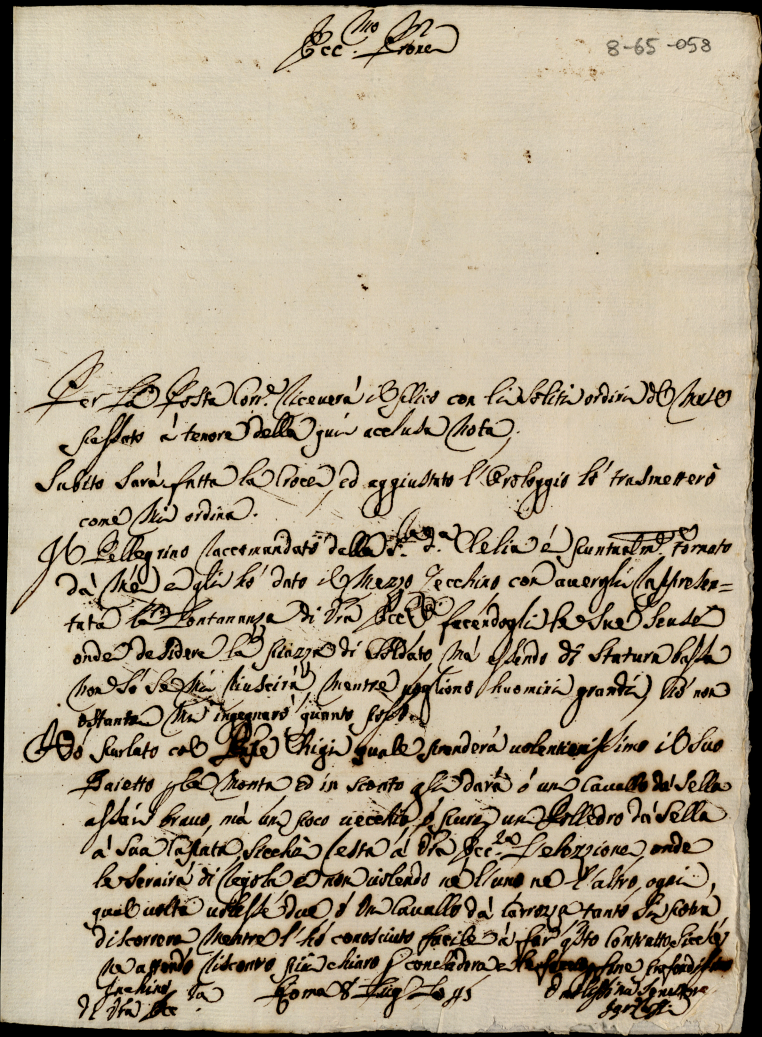 8-65-058
Ecc.mo Prone
Per la Posta Corr.e riceverà il Plico con li soliti ordini del Mese
passato à tenore della quì acclusa Nota,
Subito sarà fatta la Croce, ed aggiustato l'Orologgio lo trasmetterò
come Mi ordina.
Il Pellegrino raccomandato della S.ra D. Clelia è puntualm.e tornato
dà Me, e gli hò dato il Mezzo Zecchino con avergli rappresen=
tata la lontananza di Vra Ecc.za facendogli le Sue Scuse
onde desidera la piazza di Soldato, Mà essendo di statura bassa
non sò se Mi riuscirà, Mentre vogliono huomini grandi, Nò non
ostante M'ingegnarò quanto posso.
Hò parlato col Chigi quale prenderà volentierissimo il Suo
Baietto p la Monta ed in sconto gli darà ò un Cavallo dà Sella
assai bravo, mà un poco vecchio, ò pure un Polledro dà Sella
à Sua Capata, sicchè resta à Vra Ecc.za l'elezzione onde
le servirà di regola e non volendo ne l'uno ne l'altro, ogni
qual volta volesse due ò un Cavallo dà Carrozza tanto Si potrà
discorrere Mentre l'hò conosciuto facile à far q.sto Contratto, Sicchè
ne attendo riscontro più chiaro p concludere
Inchino Roma 8 Lug
di Vra Ecc